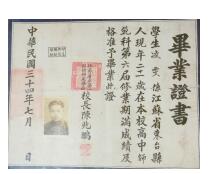 畢業證書
學生凌雯德江蘇省東台縣
人現年二十一歲在本校高中師
範科第六屆修業期滿成績及
格准予畢業此證
校長陳兆鵬
中華民國三十四年七月 日